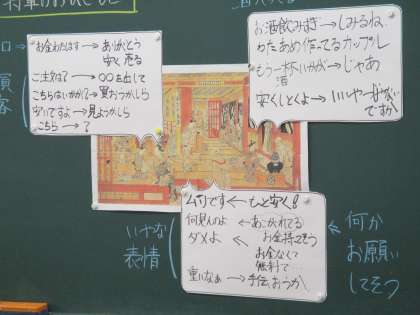 お金わたはす→ありがとう
安く売る
ご注文は?→〇〇を出して
こちらはいかが?→買おうかしら
安いですよ→見ようかしら
こちら→?
お酒飲みすぎ→しみるね
わたあめ作ってるカップル
もう一杯いかが→じゃあ
酒
安くしとくよ→いいや
ですか
ムリです←もっと安く!
何見んのよ←あこがれてる
ダメよ←お金持ってそう
お金なくて
無料で
重いなぁ→手伝おうか
いやな
表情
何か
お願い
してそう
客